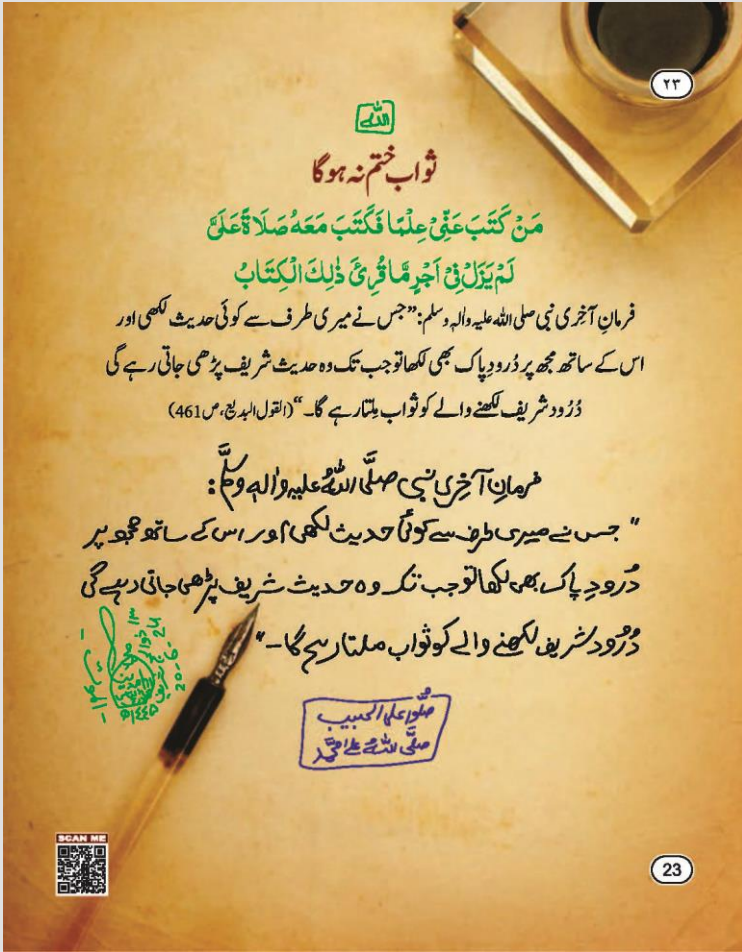 ۲۳
اللہ
ثواب ختم نہ ہوگا
مَنْ کَتَبَ عَنِّیْ عِلْمًا فَکَتَبَ مَعَہُ صَلَاۃً عَلَیَّ
لَمْ یَزَلْ فِیْ اَجْرٍ مَّا قُرِئَ ذٰلِكَ الْکِتَابُ
فرمانِ آخِری نبی صلی اللہ علیہ واٰلہٖ وسلم: ”جس نے میری طرف سے کوئی حدیث لکھی اور
اس کے ساتھ مجھ پر دُرودِ پاک بھی لکھا تو جب تک وہ حدیث شریف پڑھی جاتی رہے گی
دُرُود شریف لکھنے والے کو ثواب مِلتا رہے گا۔“ (القول البدیع، ص461)
فرمانِ آخِری نبی صلَّی اللہُ علیہِ واٰلہٖ وسلَّم:
”جس نے میری طرف سے کوئی حدیث لکھی اور اس کے ساتھ مجھ پر
دُرودِ پاک بھی لکھا تو جب تک وہ حدیث شریف پڑھی جاتی رہے گی
دُرُود شریف لکھنے والے کو ثواب ملتا رہے گا۔“
20-6-24
صلُّوا علی الحبیب
صلَّی اللہُ علیٰ محمَّد
SCAN ME
23